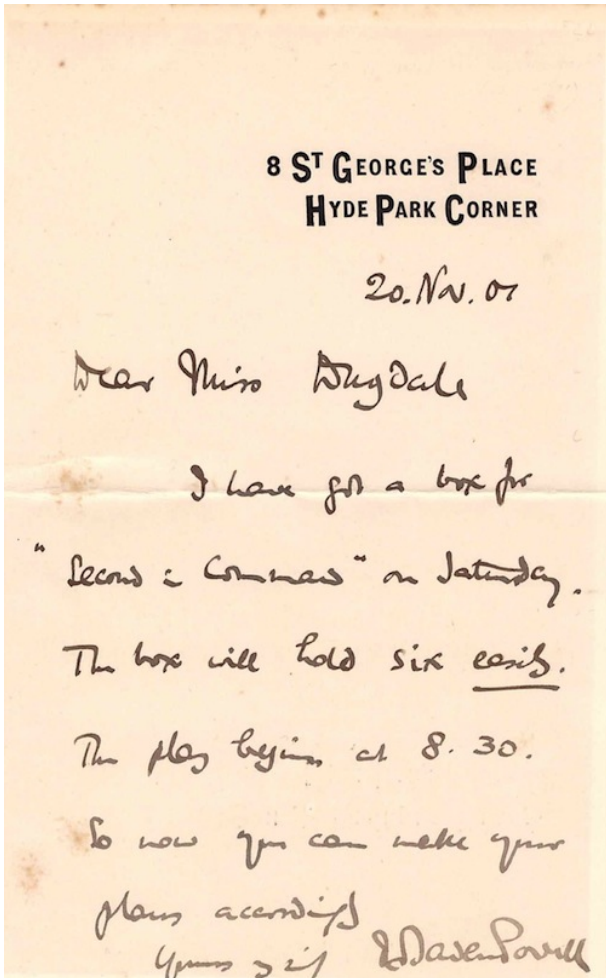 8 ST GEORGE'S PLACE
HYDE PARK CORNER
20. Nov. 01
Dear Miss Dugdale
I have got a box for
"Second in Command" on Saturday.
The box will hold six easily.
The play begins at 8.30.
So now you can make your
plans accordingly
Yours
R Baden Powell